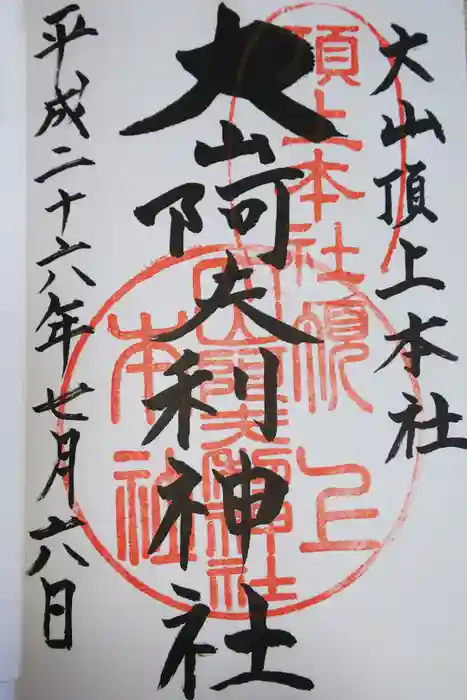 大山頂上本社
頂上本社
大山阿夫利神社
頂上
本社
平成二十六年七月六日